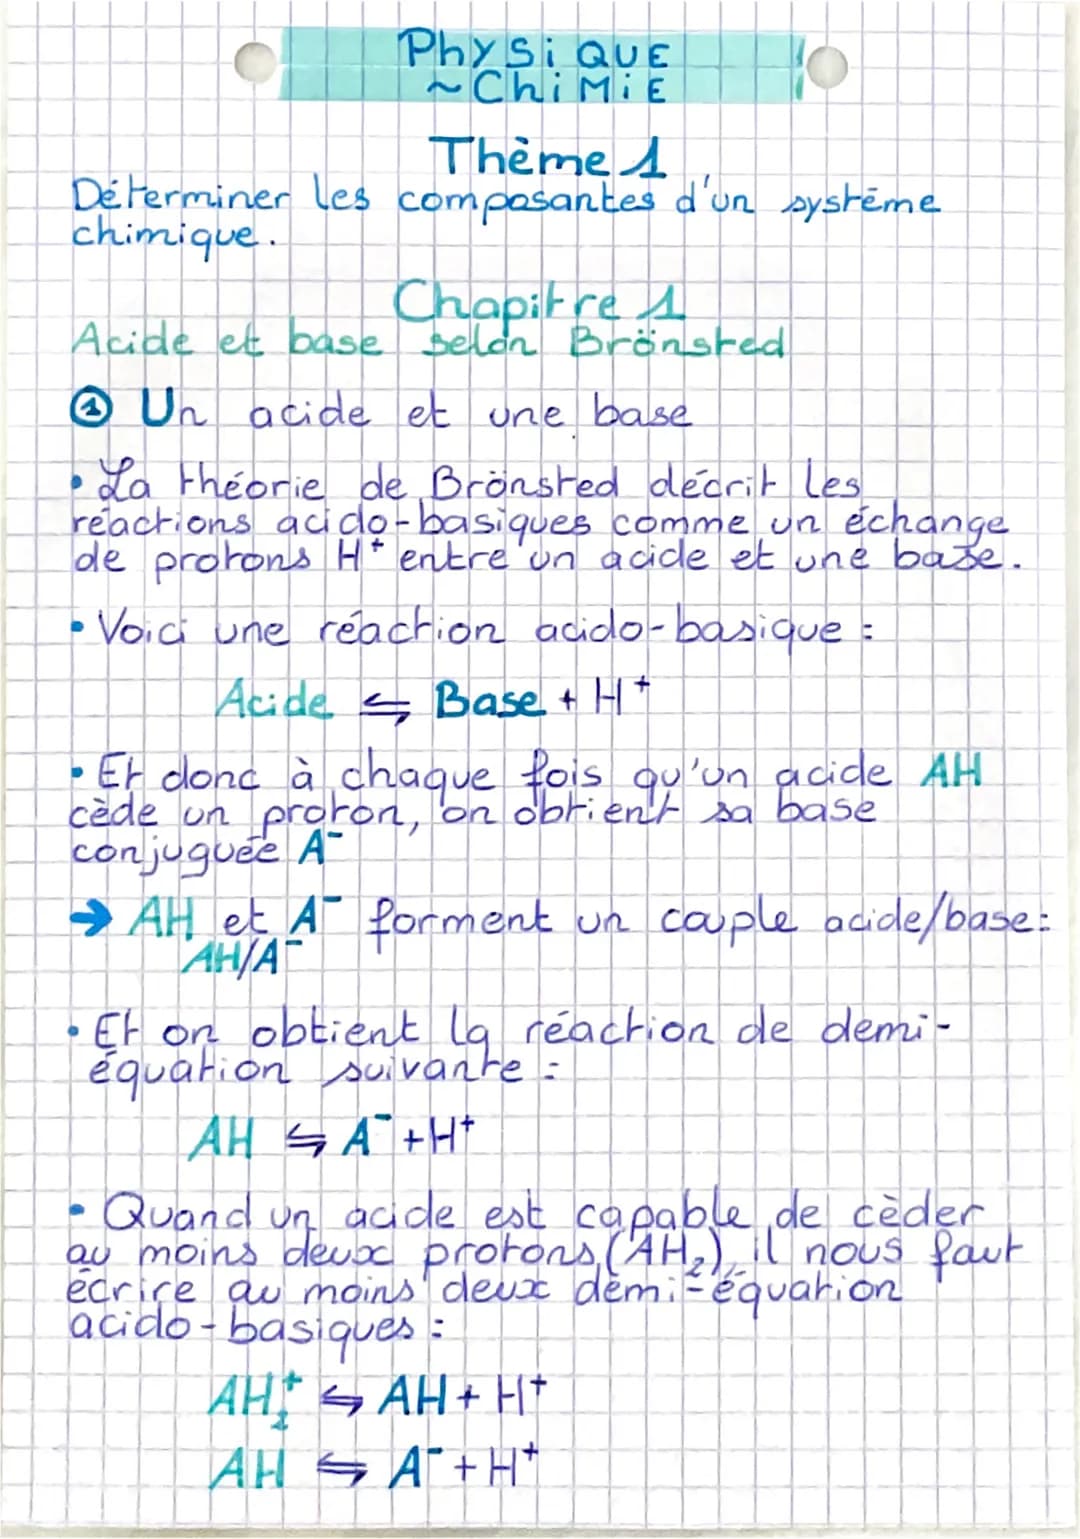 PhySiQUE
~ChiMiE
Thème 1
Déterminer les composantes d'un système
chimique.
Chapitre 1
Acide et base selon Brönsted
① Un acide et une base
• La théorie de Brönsted décrit les
réactions acido-basiques comme un échange
de protons H⁺ entre un acide et une base.
• Voici une réaction acido-basique :
Acide ⇆ Base + H⁺
• Et donc à chaque fois qu'un acide AH
cède un proton, on obtient sa base
conjuguée A⁻
→ AH et A⁻ forment un couple acide/base:
AH/A⁻
• Et on obtient la réaction de demi-
équation suivante :
AH ⇆ A⁻ + H⁺
• Quand un acide est capable de cèder
au moins deux protons (AH₂), il nous faut
écrire au moins deux demi-équation
acido-basiques :
AH₂⁺ ⇆ AH + H⁺
AH ⇆ A⁻ + H⁺